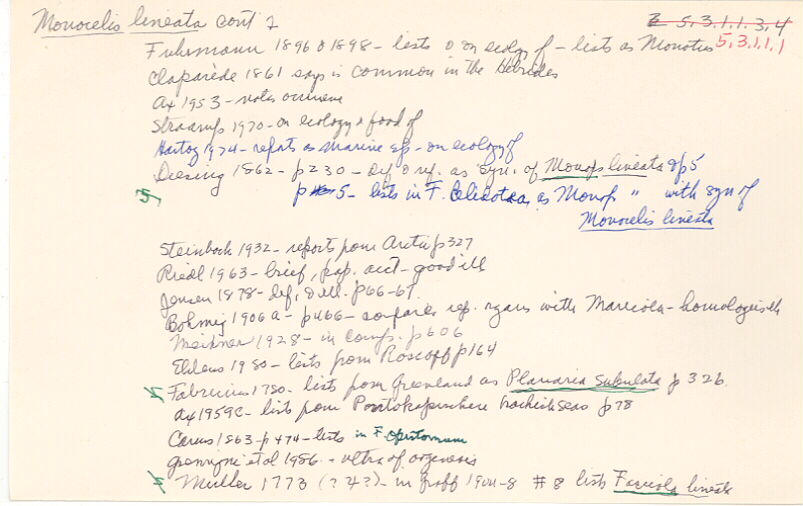 Monocelis lineata cont 2
5.3.1.1.3.4
5.3.1.1.1
Fuhrmann 1896 & 1898 - lists & on ecology of - lists as Monotus
Claparède 1861 says is common in the Hebrides
Ax 1953 - notes occurence
Straarup 1970 - on ecology & food of
Hartog 1974 - reports as marine sp. - on ecology of
Diesing 1862 - p 230 - def & ref. as syn. of Monops lineata & p5
p 5 - lists in F. as Monops " with syn of
Monocelis lineata
Steinbock 1932 - reports from Arctic p 327
Riedl 1963 - brief, pop. acct - good ill
Jensen 1878 - def, & ill. p66-67.
Bohmig 1906a - p466 - compares rep. organs with Maricola - homologies etc
Meixner 1928 - in comp. p 606
Ehlers 1980 - lists from Roscoff p164
Fabricius 1780 - lists from Greenland as Planaria subulata p 326.
Ax 1959c - lists from p 78
Carus 1863 - p 474 - lists in F. Opistomum
et al 1986 - ultra of
Müller 1773 (? 4?) - in Graff 1904-8 #8 lists Fasciola lineata